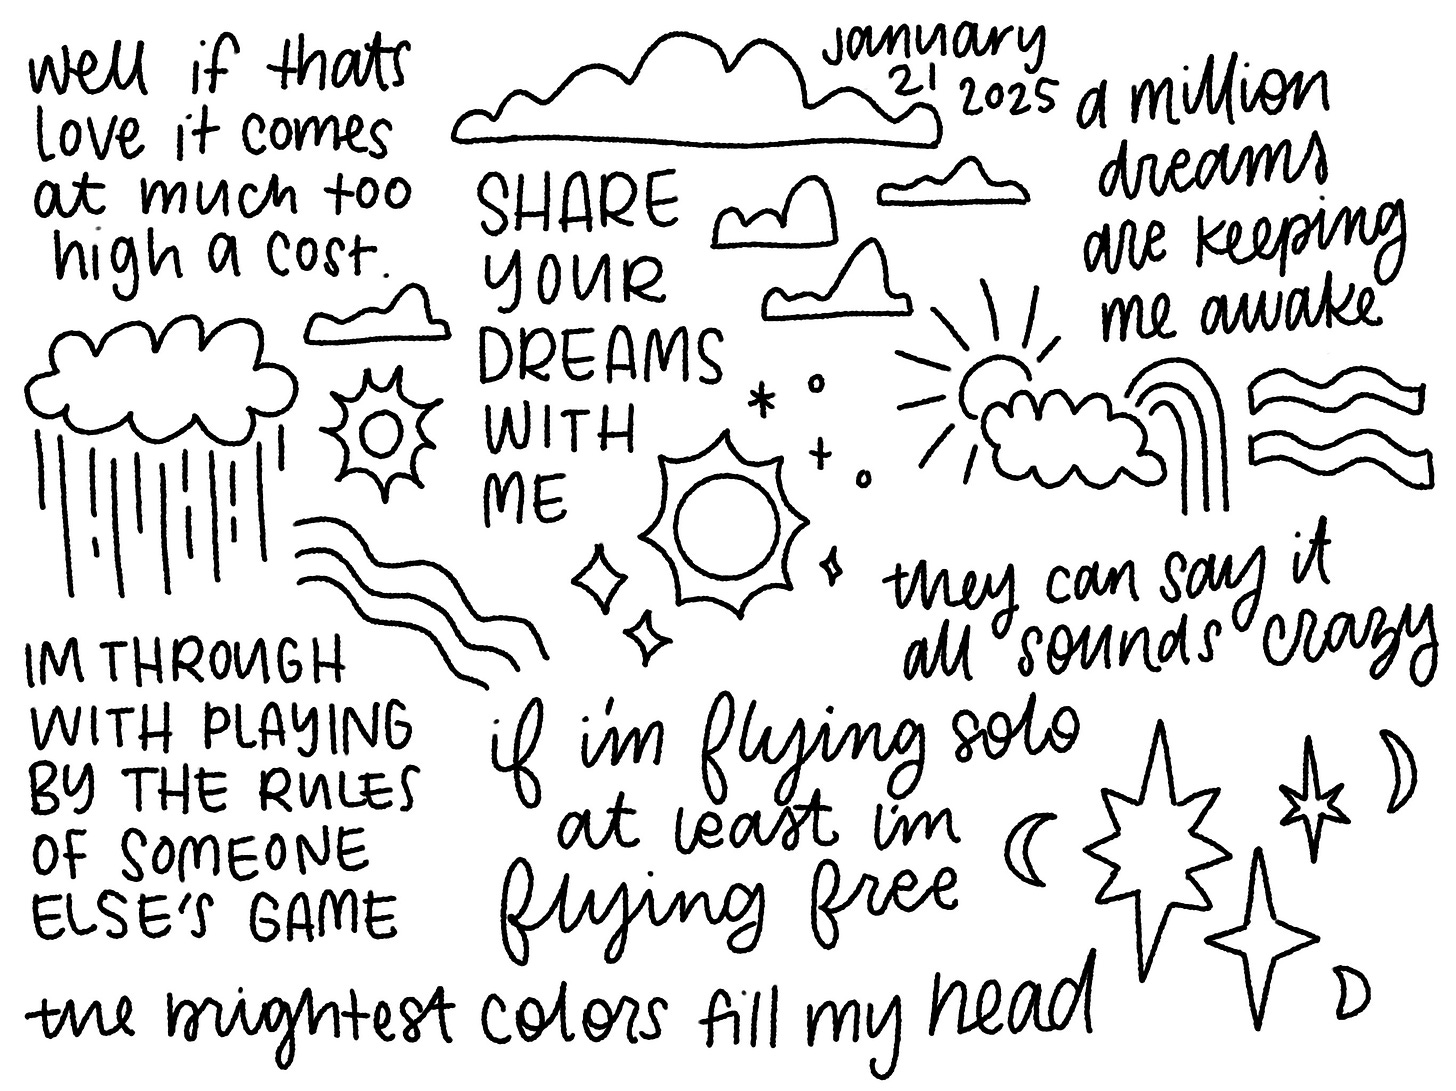 well if thats
love it comes
at much too
high a cost.
january
21 2025
SHARE
YOUR
DREAMS
WITH
ME
a million
dreams
are keeping
me awake
they can say it
all sounds crazy
IM THROUGH
WITH PLAYING
BY THE RULES
OF SOMEONE
ELSE'S GAME
if i'm flying solo
at least i'm
flying free
the brightest colors fill my head